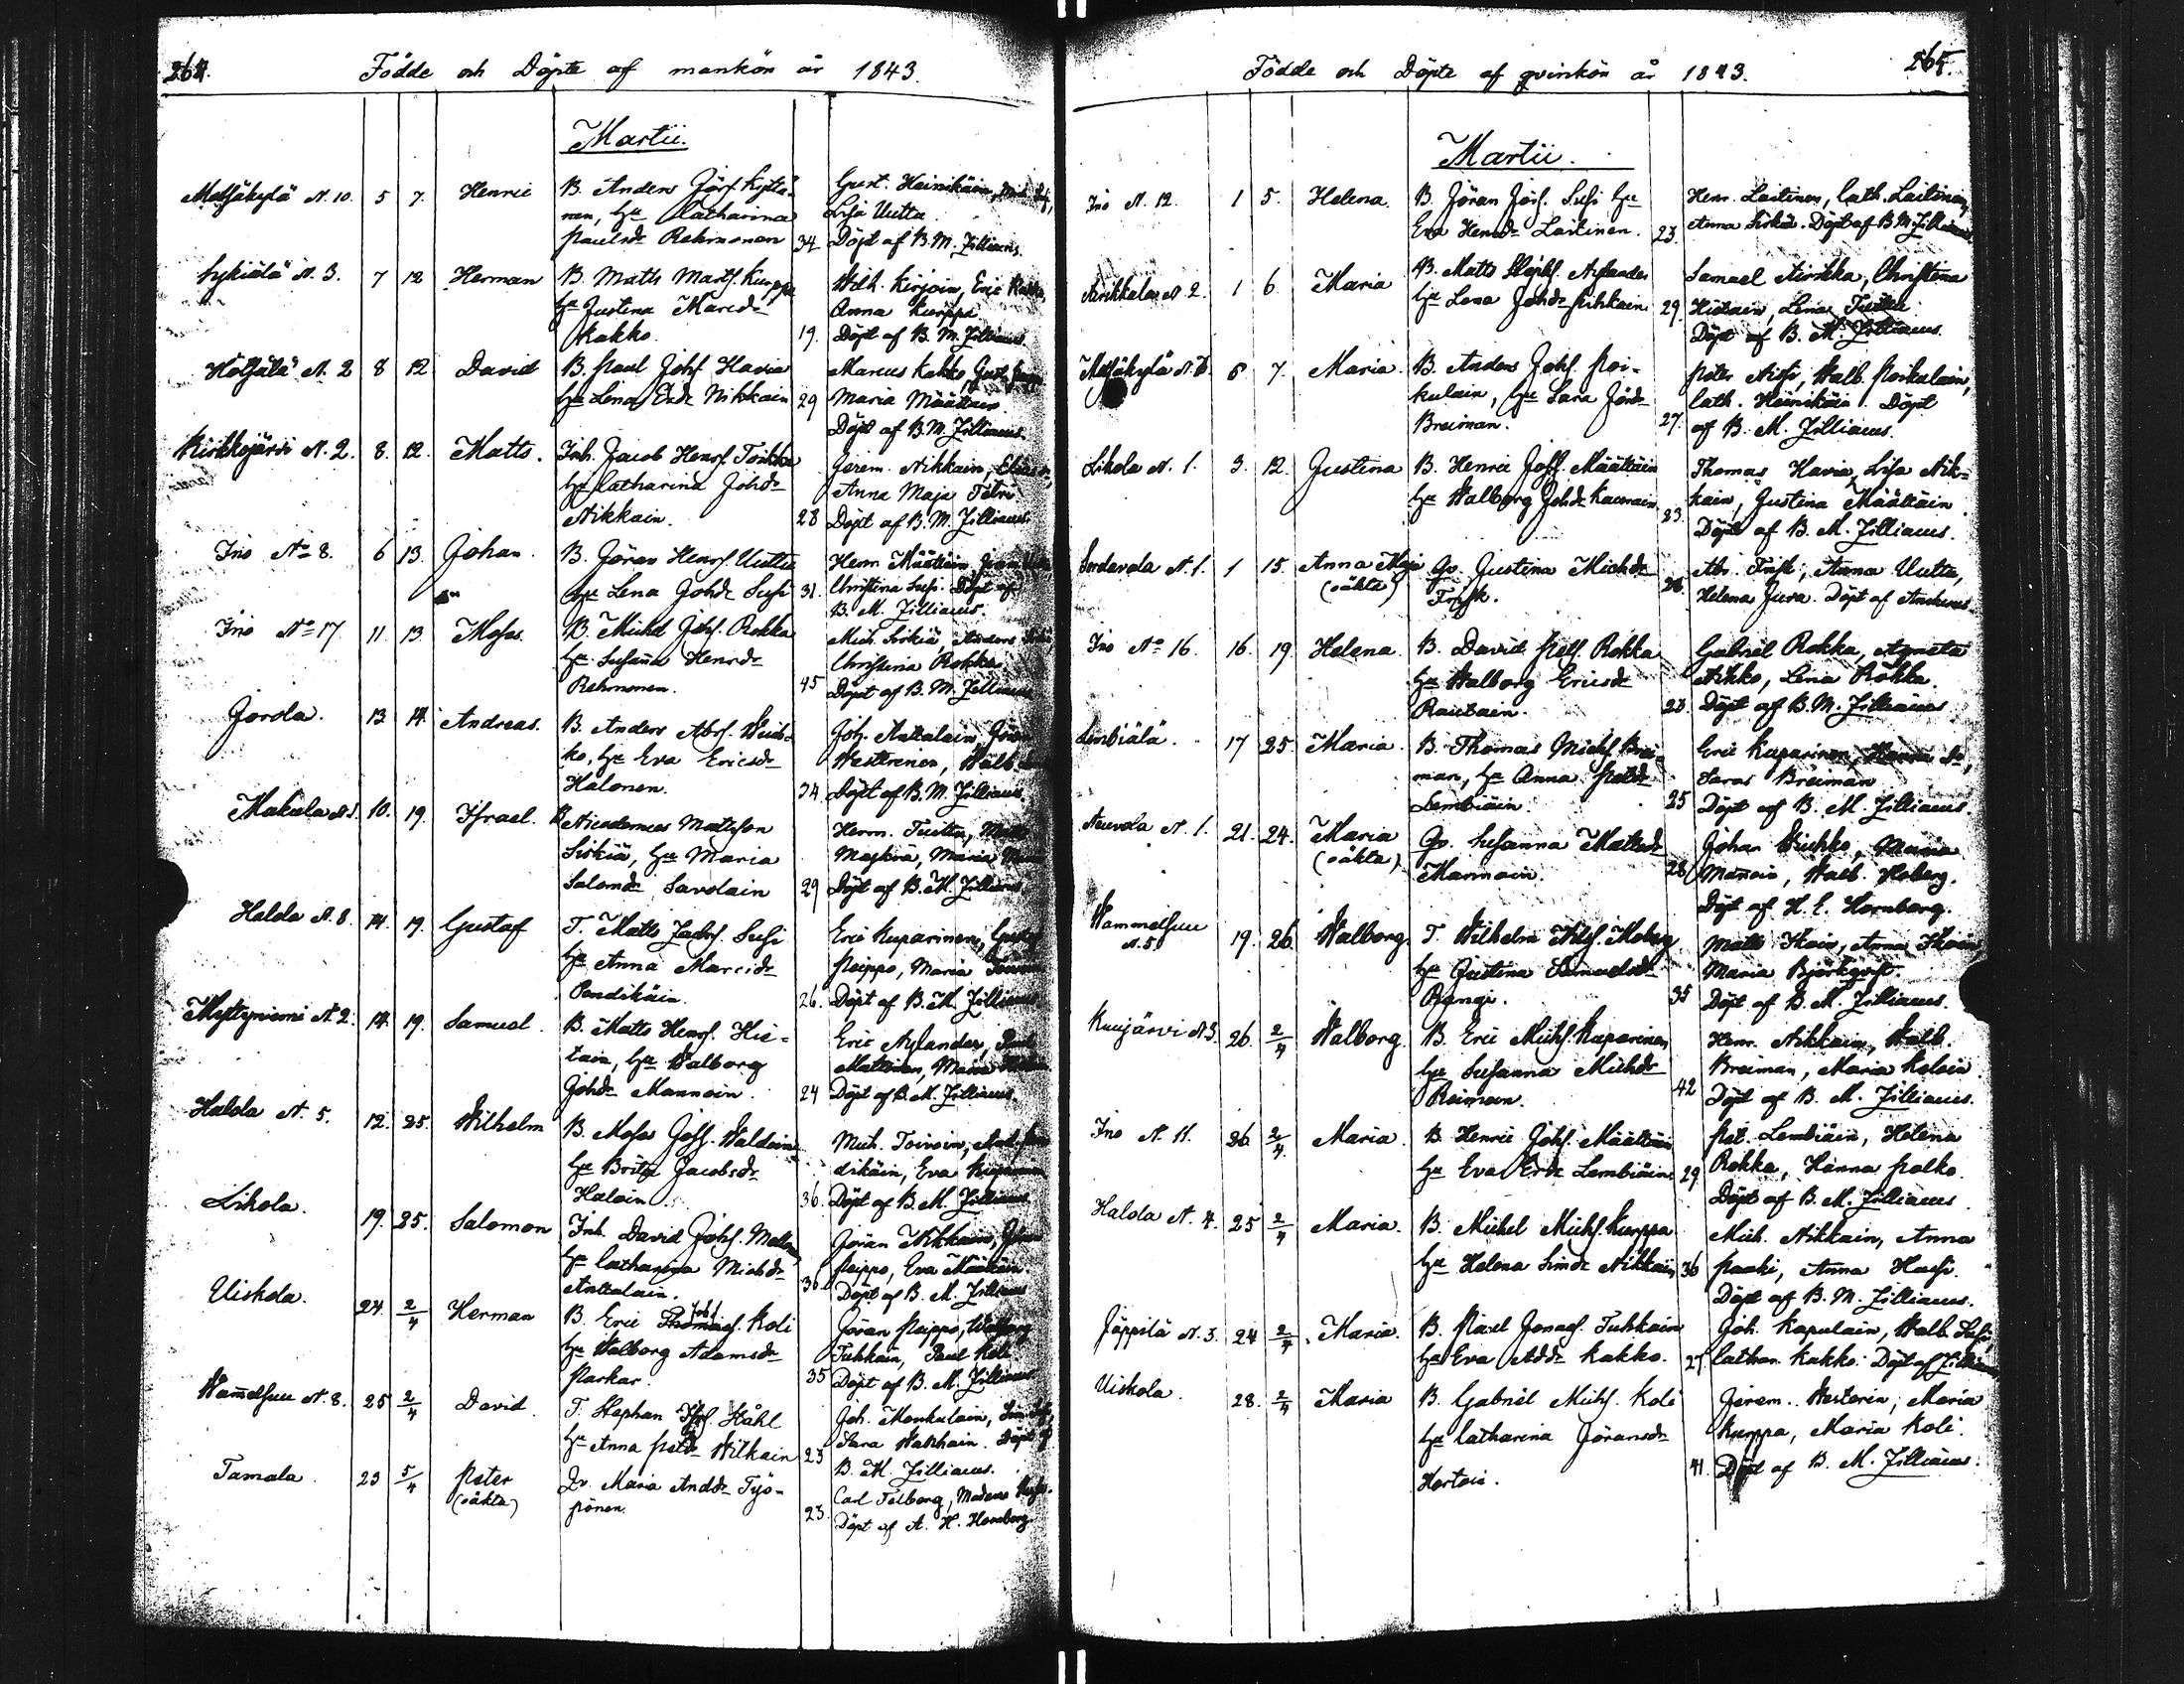 264.
Födde och Döpte af mankön år 1843.
Martii.
Metsäkylä N. 10. 5 7. Henric B. Anders Jörs. Kyttä-
nen, hu Catharina
Paulsdr Rehmonen 34
Gust. Heinikäin,
Lisa Uutta
Döpt af B. M. Zilliacus.
Sykiälä N. 3. 7 12 Herman B. Matts Matts. Kurppa
hu Justina Marcdr
Kakko. 19.
Wilh. Kirjoin, Eric Kakko,
Anna Kurppa
Döpt af B. M. Zilliacus.
Hötsälä N. 2 8 12 David B. Paul Johs. Havia
hu Lena Ersdr Nikkain 29
Marcus Kakko, Gust.
Maria Määttäin
Döpt af B. M. Zilliacus.
Kirkkojärvi N. 2. 8. 12. Matts. Inh. Jacob Henrs. Torkko
hu Catharina Johdr
Nikkain. 28
Jerem. Nikkain,
Anna Maja Tetri
Döpt af B. M. Zilliacus.
Ino No 8. 6 13. Johan. B. Jöran Henrs. Uutta
hu Lena Johdr Susi 31.
Henr. Määttäin,
Christina Susi. Döpt af
B. M. Zilliacus.
Ino No 17. 11. 13. Moses. B. Michel Johs. Rokka
hu Susanna Henrdr
Rehmonen. 45
Mich. Siskiä, Anders
Christina Rokka
Döpt af B. M. Zilliacus
Jorola. 13 14. Andreas. B. Anders Abrs. Wuih-
ko, hu Eva Ericsdr
Halonen. 34.
Joh. Anttalain, Jöran
Westerinen, Walb.
Döpt af B. M. Zilliacus.
Makula N1. 10. 19. Israel. B. Nicodemus Mattsson
Siskiä, hu Maria
Salomdr Savolain 29
Herm. Tuitta,
Maskiä, Maria
Döpt af B. M. Zilliacus.
Halola N. 8. 14. 19. Gustaf T. Matts Jacbs. Susi
hu Anna Marcidr
Pendikäin. 26.
Eric Kuparinen, Gustaf
Peippo, Maria
Döpt af B. M. Zilliacus
Mystyniemi N. 2. 14. 19. Samuel. B. Matts Henrs. Hie-
tain, hu Walborg
Johdr Mannoin. 24
Eric Nylander, Paul
Mattinen, Maria
Döpt af B. M. Zilliacus.
Halola N. 5. 12. 25. Wilhelm B. Moses Joss. Waldoin
hu Brita Jacobsdr
Haloin. 36.
Mich. Toivoin, And. Pen-
dikäin, Eva Kuparinen
Döpt af B. M. Zilliacus
Liikola. 19. 25. Salomon Inh. David Johs.
hu Catharina Michdr
Anttalain. 30.
Jöran Nikkain, Jöran
Peippo, Eva Määttäin.
Döpt af B. M. Zilliacus
Uiskola. 24. 2/4 Herman B. Eric Thomas. Joh s. Koli
hu Walborg Adamsdr
Parkar. 35
Jöran Peippo, Walborg
Tuhkain, Paul Koli
Döpt af B. M. Zilliacus
Wamelsuu N. 8. 25 2/4 David. T. Stephan Ståhl
hu Anna Petdr Wilkain 23
Joh. Monkulain,
Sara Watkhain. Döpt af
B. M. Zilliacus.
Tamala. 23 5/4 Peter
(oäkta)
Qv. Maria Anddr Työ-
pönen. 23.
Carl Telborg, Madame
Döpt af A. H. Hornborg.
265.
Födde och Döpte af qvinkön år 1843.
Martii.
Ino N. 12. 1 5. Helena. B. Jöran Jörs. Susi hu
Eva Henrdr Laitinen. 23.
Henr. Laitinen, Cath. Laitinen,
Anna Siskiä. Döpt af B. M. Zilliacus
Airikkala N. 2. 1 6. Maria B. Matts Steph s. Nylander
hu Lena Johdr Pihkain 29.
Samuel Airikka, Christina
Hietain, Lena
Döpt af B. M. Zilliacus.
Metsäkylä 5 7. Maria. B. Anders Johs. Poi-
kulain, hu Sara Jördr
Breiman. 27.
Peter Aissi, Walb. Poikulain,
Cath. Heinikäin. Döpt
af B. M. Zilliacus.
Liikola N. 1. 3. 12. Justina B. Henric Joss. Määttäin
hu Walborg Johdr Kaurain. 23.
Thomas Havia, Lisa Nik-
kain, Justina Määttäin.
Döpt af B. M. Zilliacus.
Sordavala N. 1. 1 15. Anna Maja
(oäkta)
Qv. Justina Michdr
Frisk.
Abr. Frisk, Anna Uutta,
Helena Jura. Döpt af
Ino No 16. 16. 19. Helena. B. David Pets. Rokka
hu Walborg Ericsdr
Rautain. 23.
Gabriel Rokka, Agneta
Nikko, Lena Rokka.
Döpt af B. M. Zilliacus
Lembiälä. 17 25. Maria. B. Thomas Michs. Brei-
man, hu Anna Petdr
Lembiäin 25
Eric Kuparinen, Hanna
Saras Breiman
Döpt af B. M. Zilliacus.
Neuvola N. 1. 21. 24. Maria
(oäkta)
Qv. Susanna Mattsdr
Mannoin. 28
Johan Wuihko, Maria
Manoin, Walb. Hoberg.
Döpt af H. E. Hornborg.
Wammelsuu
N. 5. 19. 26. Walborg T. Wilhelm Moberg
hu Justina Samuelsdr
Pengi. 35
Matts Skoin, Anna Skoin
Maria Björkqvist.
Döpt af B. M. Zilliacus.
Kuujärvi N3. 26. 2/4 Walborg. B. Eric Michs. Kuparinen
hu Susanna Michdr
Reiman. 42
Henr. Nikkain, Walb.
Breiman, Maria Koloin.
Döpt af B. M. Zilliacus.
Ino N. 11. 26. 2/4 Maria. B. Henric Johs. Määttäin
hu Eva Ersdr Lembiäin 29
Pet. Lembiäin, Helena
Rokka, Hanna Palko.
Döpt af B. M. Zilliacus
Halola N. 4. 25 2/4 Maria. B. Michel Michs. Kurppa
hu Helena Simdr Nikkain 36
Mich. Nikkain, Anna
Paaki, Anna Hussi.
Döpt af B. M. Zilliacus.
Jäppilä N. 3. 24 2/4 Maria. B. Paul Jonass. Tuhkain
hu Eva Addr Kakko. 27
Joh. Kapulain, Walb. Susi,
Cathar. Kakko. Döpt af Zilliacus
Uiskola. 28. 2/4 Maria B. Gabriel Michs. Koli
hu Catharina Jöransdr
Hertoin. 41.
Jerem. Westerin, Maria
Kurppa, Maria Koli.
Döpt af B. M. Zilliacus.